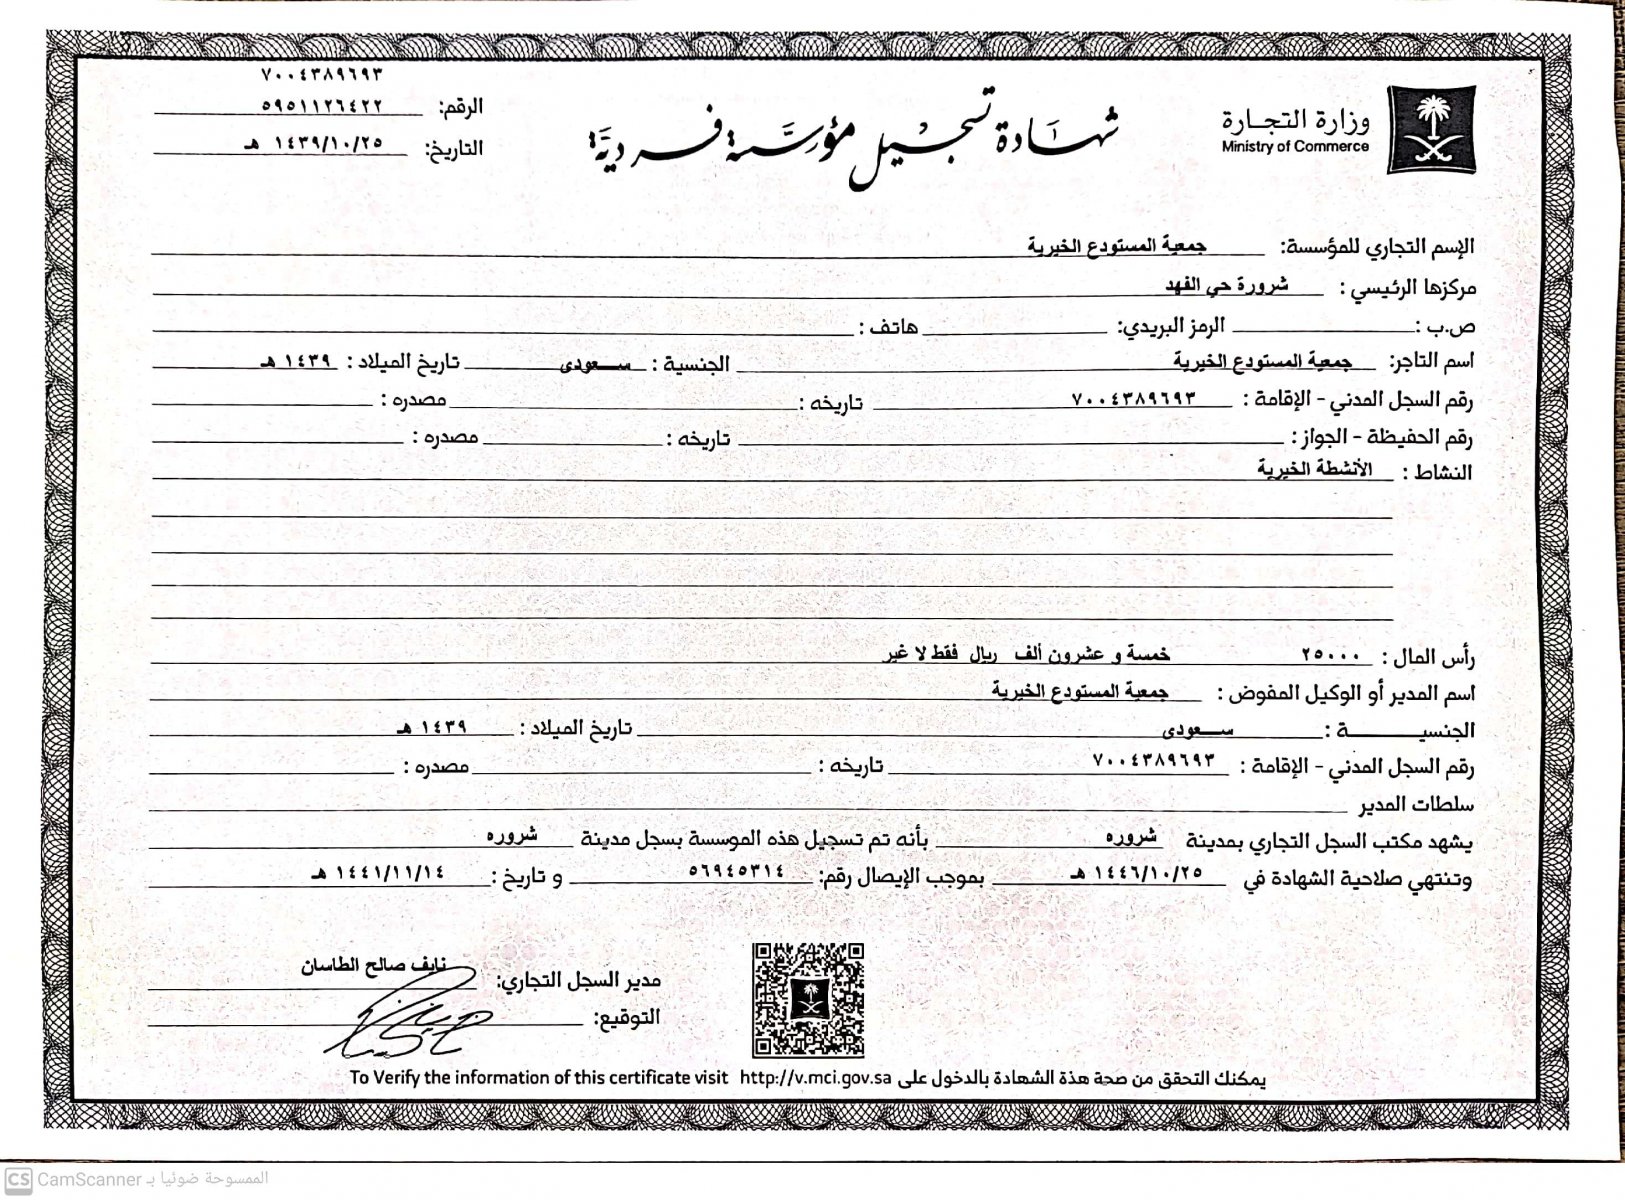 وزارة التجـارة
Ministry of Commerce
شهادة تسجيل مؤسسة فردية
٧٠٠٤٣٨٩٦٩٣
الرقم: ٥٩٥١١٢٦٤٢٢
التاريخ: ١٤٣٩/١٠/٢٥ هـ
الإسم التجاري للمؤسسة: جمعية المستودع الخيرية
مركزها الرئيسي : شرورة حي الفهد
ص.ب : الرمز البريدي: هاتف :
اسم التاجر: جمعية المستودع الخيرية الجنسية : سـعودى تاريخ الميلاد : ١٤٣٩ هـ
رقم السجل المدني - الإقامة : ٧٠٠٤٣٨٩٦٩٣ تاريخه : مصدره :
رقم الحفيظة - الجواز : تاريخه : مصدره :
النشاط : الأنشطة الخيرية
رأس المال : ٢٥٠٠٠ خمسة و عشرون ألف ريال فقط لا غير
اسم المدير أو الوكيل المفوض : جمعية المستودع الخيرية
الجنسيـــة : سـعودى تاريخ الميلاد : ١٤٣٩ هـ
رقم السجل المدني - الإقامة : ٧٠٠٤٣٨٩٦٩٣ تاريخه : مصدره :
سلطات المدير
يشهد مكتب السجل التجاري بمدينة شروره بأنه تم تسجيل هذه الموسسة بسجل مدينة شروره
وتنتهي صلاحية الشهادة في ١٤٤٦/١٠/٢٥ هـ بموجب الإيصال رقم: ٥٦٩٤٥٣١٤ و تاريخ : ١٤٤١/١١/١٤ هـ
مدير السجل التجاري: نايف صالح الطاسان
التوقيع:
يمكنك التحقق من صحة هذة الشهادة بالدخول على To Verify the information of this certificate visit http://v.mci.gov.sa
CS CamScanner الممسوحة ضوئيا بـ